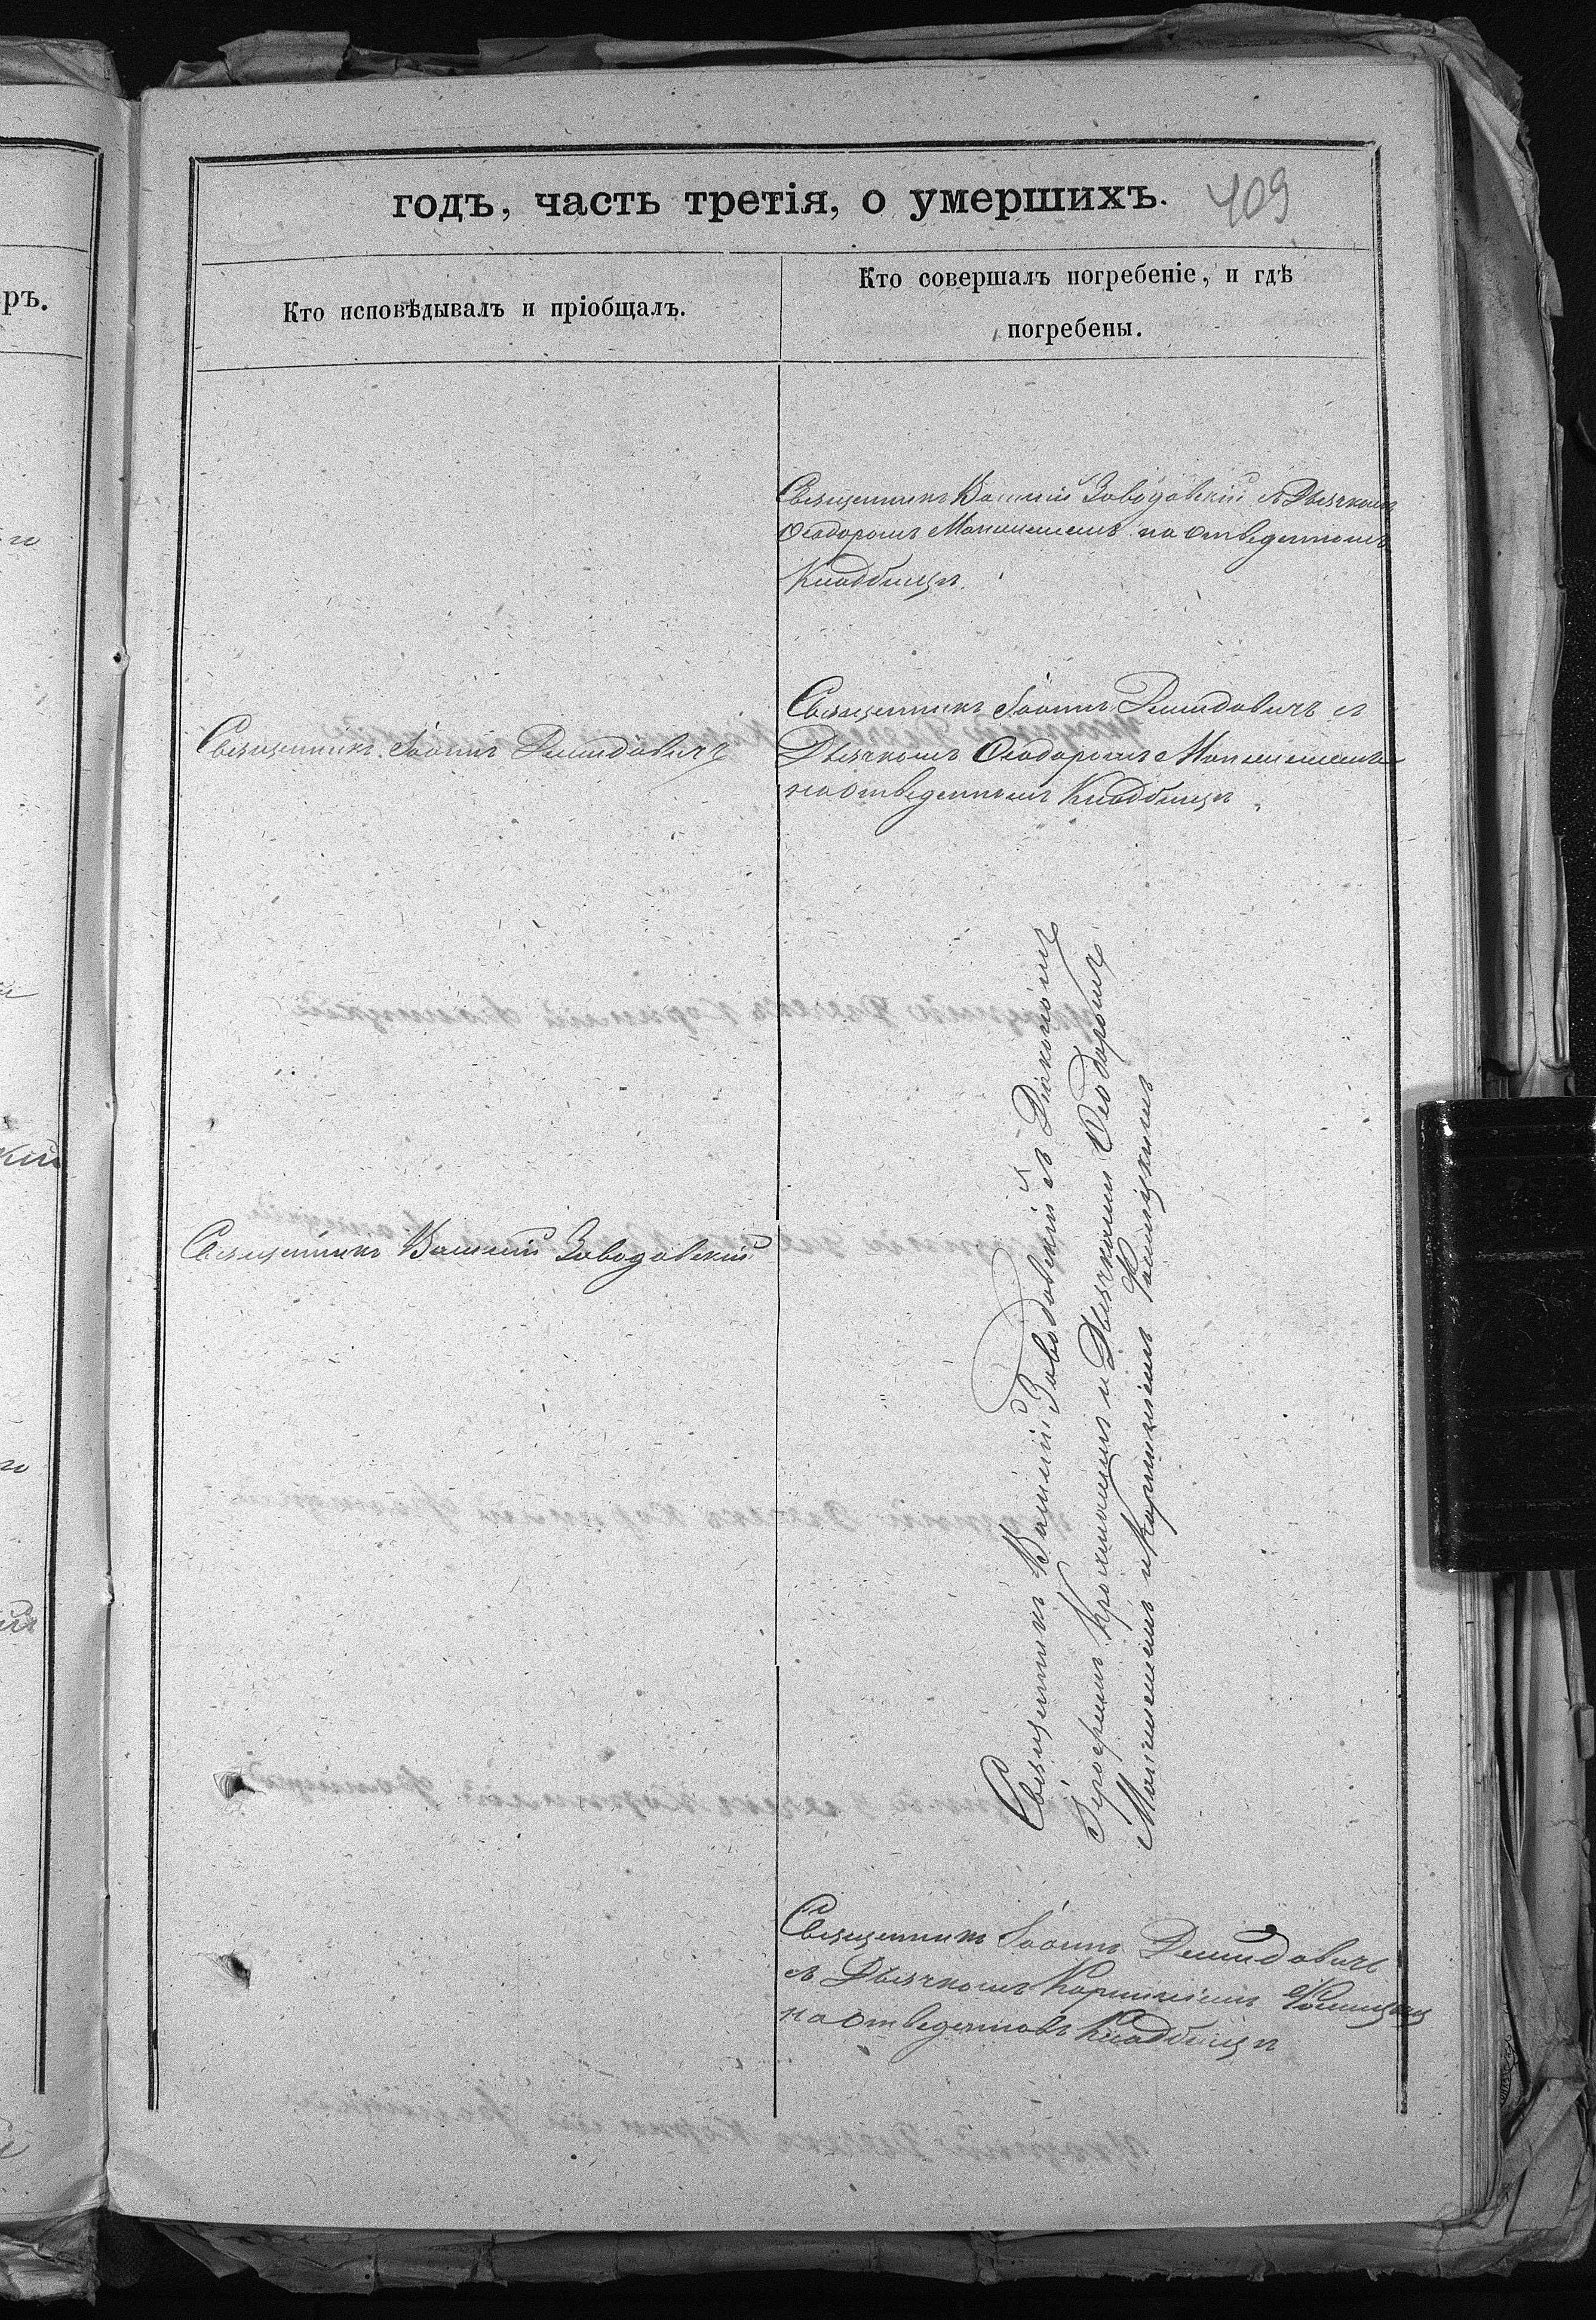 годъ, часть третія, о умершихъ.
409
ръ.
Кто исповѣдывалъ и пріобщалъ.
Кто совершалъ погребеніе, и гдѣ
погребены.
Священникъ Василій Заводовскій съ Дьячкомъ
Ѳеодоромъ на отведенномъ
Кладбищѣ.
Священникъ Іоаннъ Демидовичъ
Священникъ Іоаннъ Демидовичъ съ
Дьячкомъ Ѳеодоромъ
на отведенномъ Кладбищѣ
Священникъ Василій Заводовскій
Священникъ Василій Заводовскій съ Діакономъ
и Дьячками Ѳеодоромъ
и Корниліемъ
Священникъ Іоаннъ Демидовичъ
съ Дьячкомъ Корниліемъ
на отведенномъ Кладбищѣ